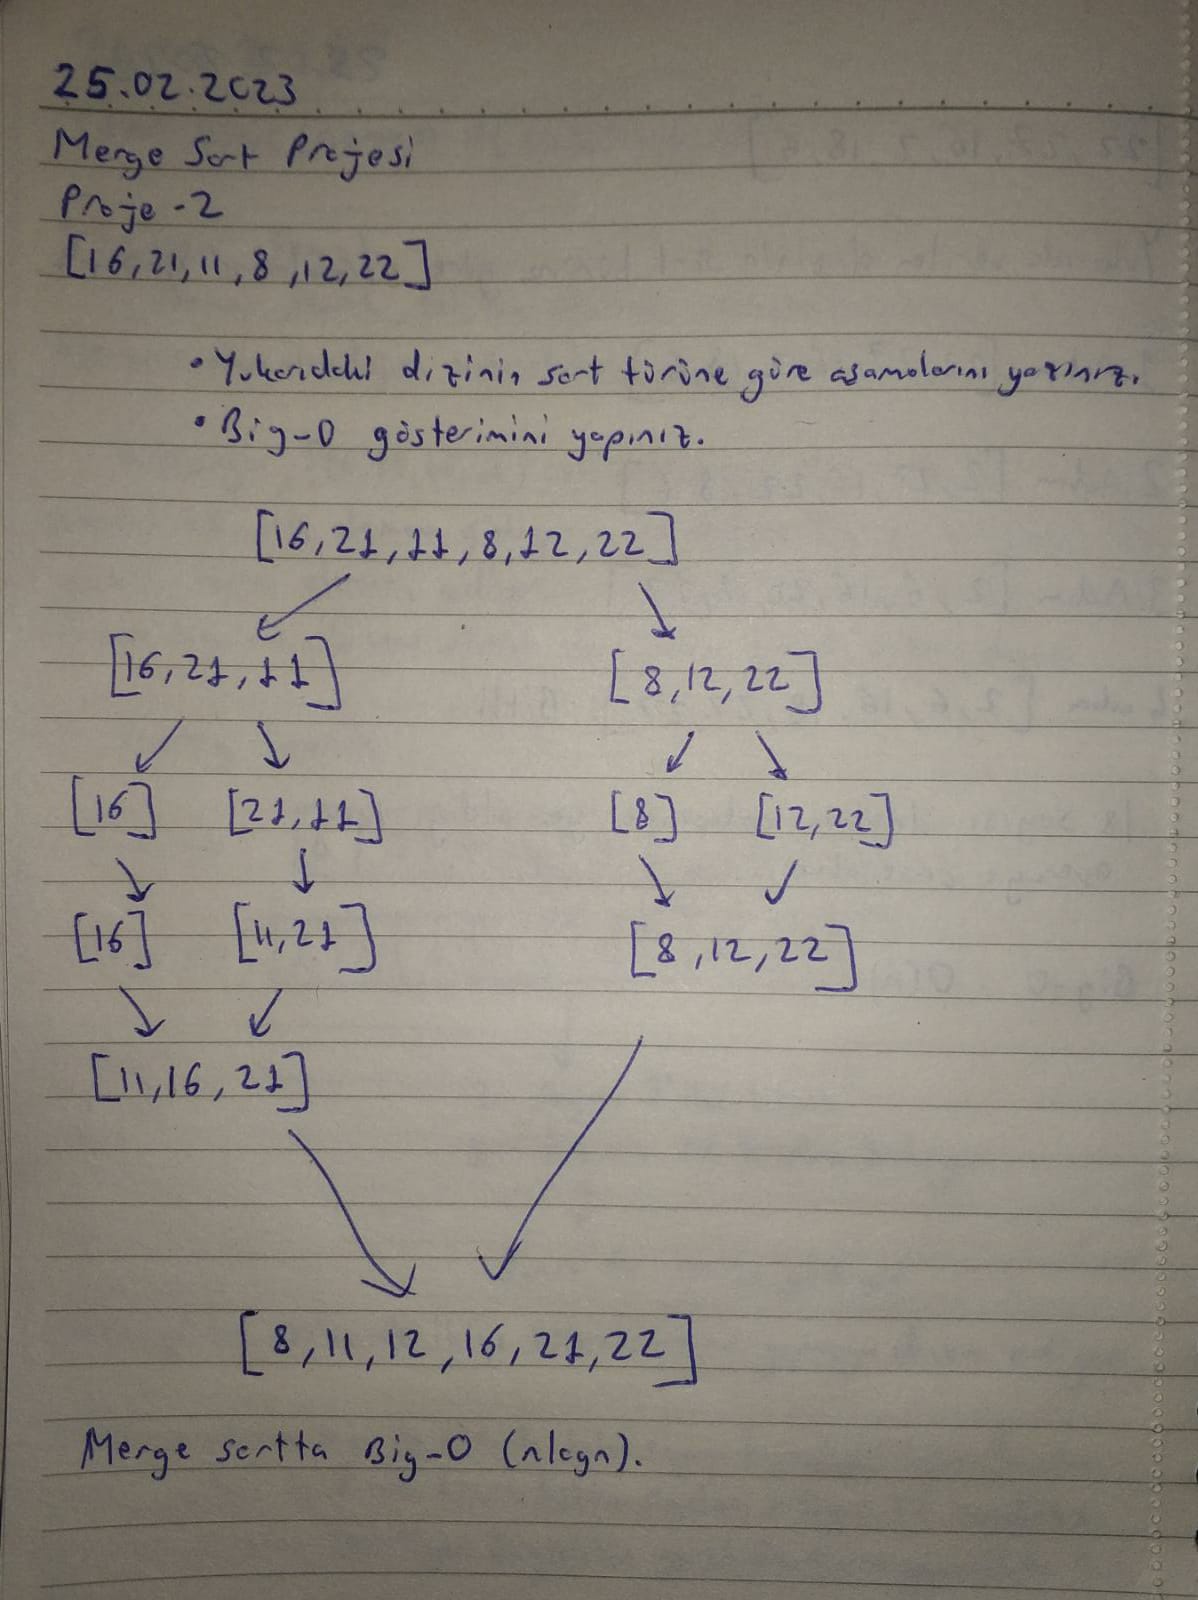 25.02.2023
Merge Sort Projesi
Proje -2
[16,21,11,8,12,22]
• Yukarıdaki dizinin sort türüne göre aşamalarını yazınız.
• Big-O gösterimini yapınız.
[16,21,11,8,12,22]
[16,21,11] [8,12,22]
[16] [21,11] [8] [12,22]
[16] [11,21] [8,12,22]
[11,16,21]
[8,11,12,16,21,22]
Merge sortta Big-O (nlogn).